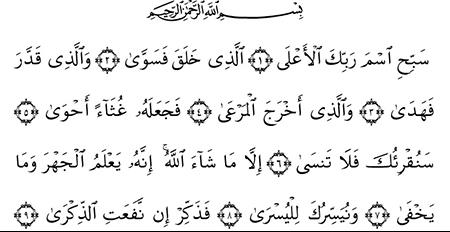 بِسْمِ ٱللَّهِ ٱلرَّحْمَٰنِ ٱلرَّحِيمِ
سَبِّحِ ٱسْمَ رَبِّكَ ٱلْأَعْلَى ﴿١﴾ ٱلَّذِى خَلَقَ فَسَوَّىٰ ﴿٢﴾ وَٱلَّذِى قَدَّرَ
فَهَدَىٰ ﴿٣﴾ وَٱلَّذِىٓ أَخْرَجَ ٱلْمَرْعَىٰ ﴿٤﴾ فَجَعَلَهُۥ غُثَآءً أَحْوَىٰ ﴿٥﴾
سَنُقْرِئُكَ فَلَا تَنسَىٰٓ ﴿٦﴾ إِلَّا مَا شَآءَ ٱللَّهُ ۚ إِنَّهُۥ يَعْلَمُ ٱلْجَهْرَ وَمَا
يَخْفَىٰ ﴿٧﴾ وَنُيَسِّرُكَ لِلْيُسْرَىٰ ﴿٨﴾ فَذَكِّرْ إِن نَّفَعَتِ ٱلذِّكْرَىٰ ﴿٩﴾